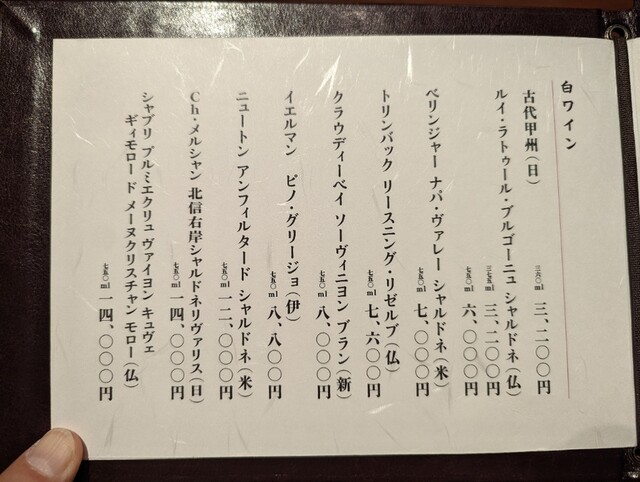 白ワイン
古代甲州(日)
三六〇ml 三、二〇〇円
ルイ・ラトゥール・ブルゴーニュ シャルドネ(仏)
三七五ml 三、二〇〇円
七五〇ml 六、〇〇〇円
ベリンジャー ナパ・ヴァレー シャルドネ(米)
七五〇ml 七、〇〇〇円
トリンバック リースニング・リゼルブ(仏)
七五〇ml 七、六〇〇円
クラウディーベイ ソーヴィニヨン ブラン(新)
七五〇ml 八、〇〇〇円
イエルマン ピノ・グリージョ(伊)
七五〇ml 八、八〇〇円
ニュートン アンフィルタード シャルドネ(米)
七五〇ml 一二、〇〇〇円
Ch・メルシャン 北信右岸シャルドネリヴァリス(日)
七五〇ml 一四、〇〇〇円
シャブリ プルミエクリュ ヴァイヨン キュヴェ
ギィモロー ド メーヌクリスチャン モロー(仏)
七五〇ml 一四、〇〇〇円